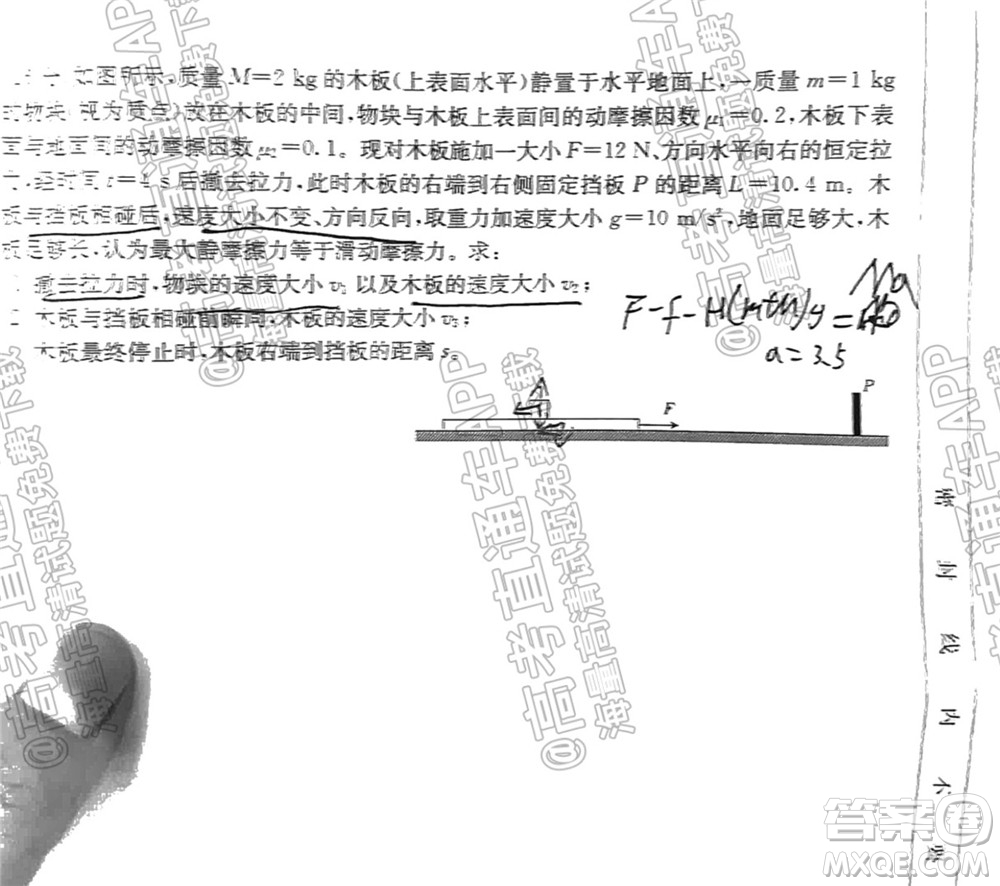 如图所示,质量 M=2 kg 的木板(上表面水平)静置于水平地面上,一质量 m=1 kg
的物块(视为质点)放在木板的中间,物块与木板上表面间的动摩擦因数 μ₁=0.2,木板下表
面与地面间的动摩擦因数 μ₂=0.1。现对木板施加一大小 F=12 N、方向水平向右的恒定拉
,经时间 t=4 s 后撤去拉力,此时木板的右端到右侧固定挡板 P 的距离 L=10.4 m。木
板与挡板相碰后,速度大小不变、方向反向,取重力加速度大小 g=10 m/s²,地面足够大,木
板足够长,认为最大静摩擦力等于滑动摩擦力。求:
撤去拉力时,物块的速度大小 v₁ 以及木板的速度大小 v₂;
木板与挡板相碰前瞬间,木板的速度大小 v₃;
木板最终停止时,木板右端到挡板的距离 s。
Ma
F-f-μ(m+M)g=
a=3.5
F
P
密
封
线
内
不
要
@高考直通车APP
海量高清试题免费下载
@高考直通车APP
海量高清试题免费下载
@高考直通车APP
海量高清试题免费下载
@高考直通车APP
海量高清试题免费下载
答案圈
MXQE.COM